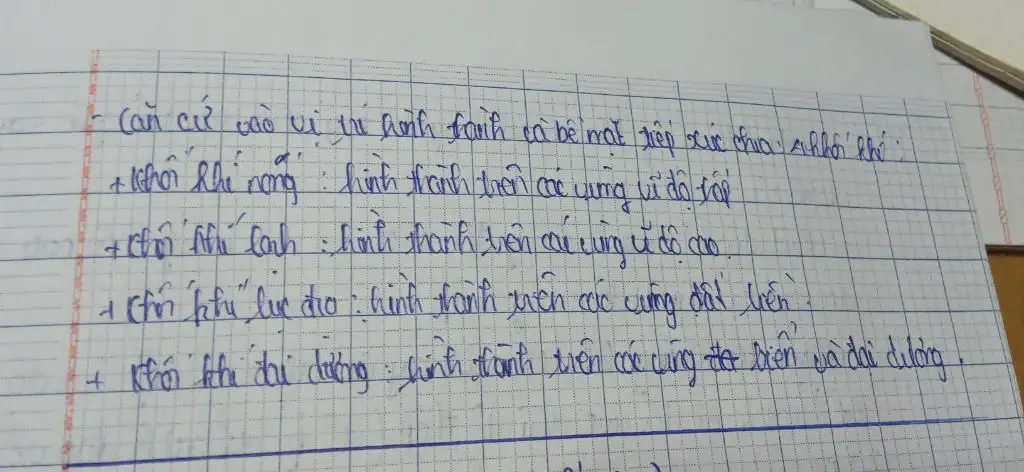 - Căn cứ vào vị trí hình thành và bề mặt tiếp xúc chia 4 khối khí:
+ Khối khí nóng: hình thành trên các vùng vĩ độ thấp
+ Khối khí lạnh: hình thành trên các vùng vĩ độ cao.
+ Khối khí lục địa: hình thành trên các vùng đất liền
+ Khối khí đại dương: hình thành trên các vùng biển và đại dương.